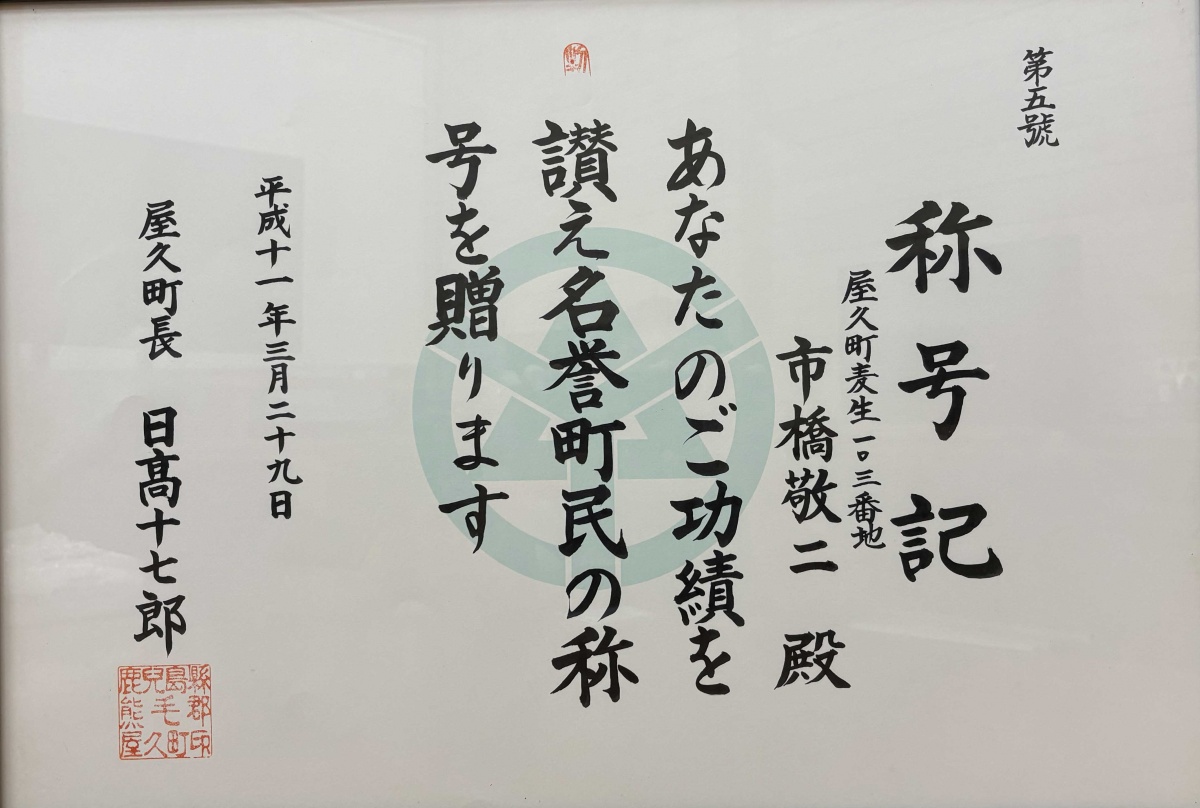 第五號
称号記
屋久町麦生一〇三番地
市橋敬二 殿
あなたのご功績を
讃え名誉町民の称
号を贈ります
平成十一年三月二十九日
屋久町長 日髙十七郎
鹿兒島縣
熊毛郡
屋久町印